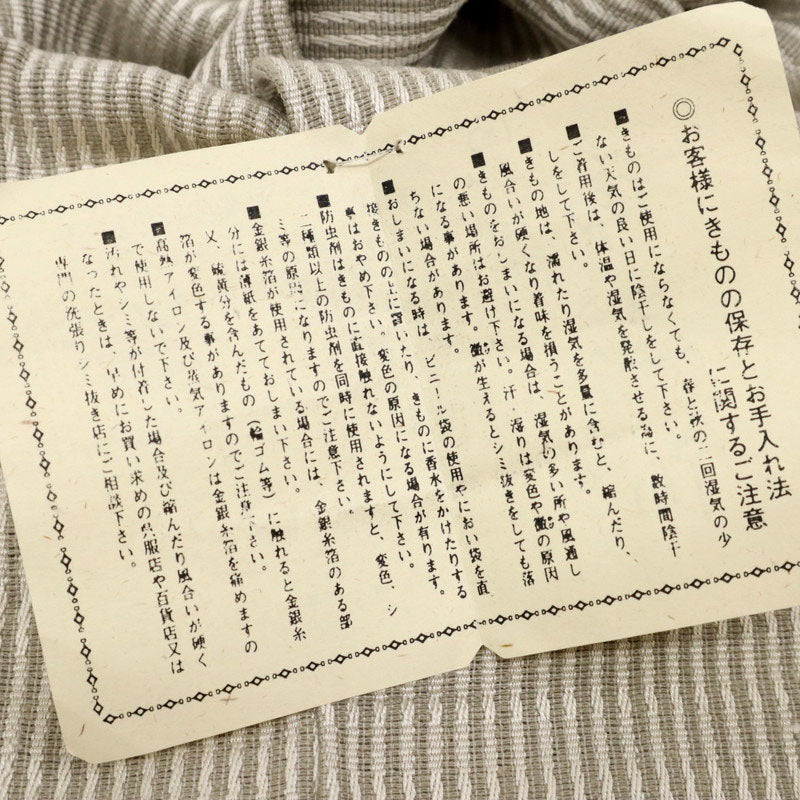 ◎お客様にきものの保存とお手入れ法
に関するご注意
■きものはご使用にならなくても、春と秋の二回湿気の少
ない天気の良い日に陰干しをして下さい。
■ご着用後は、体温や湿気を発散させる為に、数時間陰干
しをして下さい。
■きもの地は、濡れたり湿気を多量に含むと、縮んだり、
風合いが硬くなり着味を損うことがあります。
■きものをおしまいになる場合は、湿気の多い所や風通し
の悪い場所はお避け下さい。汗、湿りは変色や黴の原因
になる事があります。黴が生えるとシミ抜きをしても落
ちない場合があります。
■おしまいになる時は、ビニール袋の使用やにおい袋を直
接きものの上に置いたり、きものに香水をかけたりする
事はおやめ下さい。変色の原因になる場合が有ります。
■防虫剤はきものに直接触れないようにして下さい。
二種類以上の防虫剤を同時に使用されますと、変色、シ
ミ等の原因になりますのでご注意下さい。
■金銀糸箔が使用されている場合には、金銀糸箔のある部
分には薄紙をあてておしまい下さい。
又、硫黄分を含んだもの（輪ゴム等）に触れると金銀糸
箔が変色する事がありますのでご注意下さい。
■高熱アイロン及び蒸気アイロンは金銀糸箔を痛めますの
で使用しないで下さい。
■汚れやシミ等が付着した場合及び縮んだり風合いが硬く
なったときは、早めにお買い求めの呉服店や百貨店又は
専門の洗張りシミ抜き店にご相談下さい。